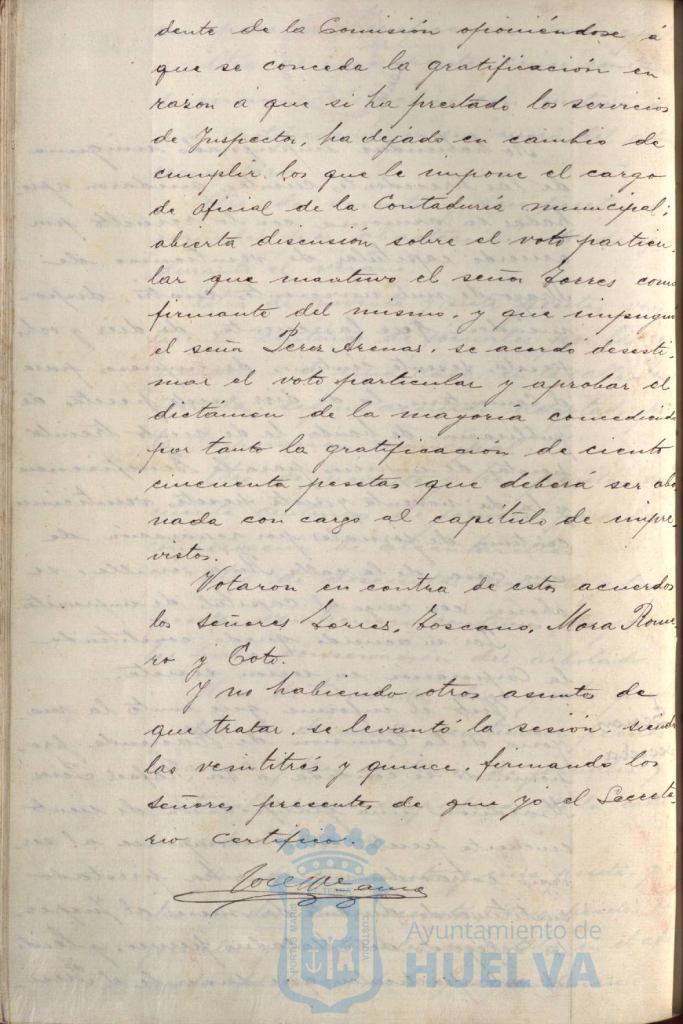 dente de la Comisión oponiéndose á
que se conceda la gratificación en
razon á que si ha prestado los servicios
de Inspector, ha dejado en cambio de
cumplir los que le impone el cargo
de oficial de la Contaduría municipal;
abierta discusión sobre el voto particu-
lar que mantuvo el señor Torres como
firmante del mismo, y que impugnó
el señor Perez Arenas, se acordó desesti-
mar el voto particular y aprobar el
dictámen de la mayoría concediendo
por tanto la gratificación de ciento
cincuenta pesetas que deberá ser abo-
nada con cargo al capítulo de impre-
vistos.
Votaron en contra de estos acuerdos
los señores Torres, Toscano, Mora Rome-
ro y Coto.
Y no habiendo otros asuntos de
que tratar, se levantó la sesión, siendo
las veintitrés y quince, firmando los
señores presentes de que yo el Secreta-
rio certifico.
PORTUS MARIS ET TERRAE CUSTODIA
Ayuntamiento de
HUELVA